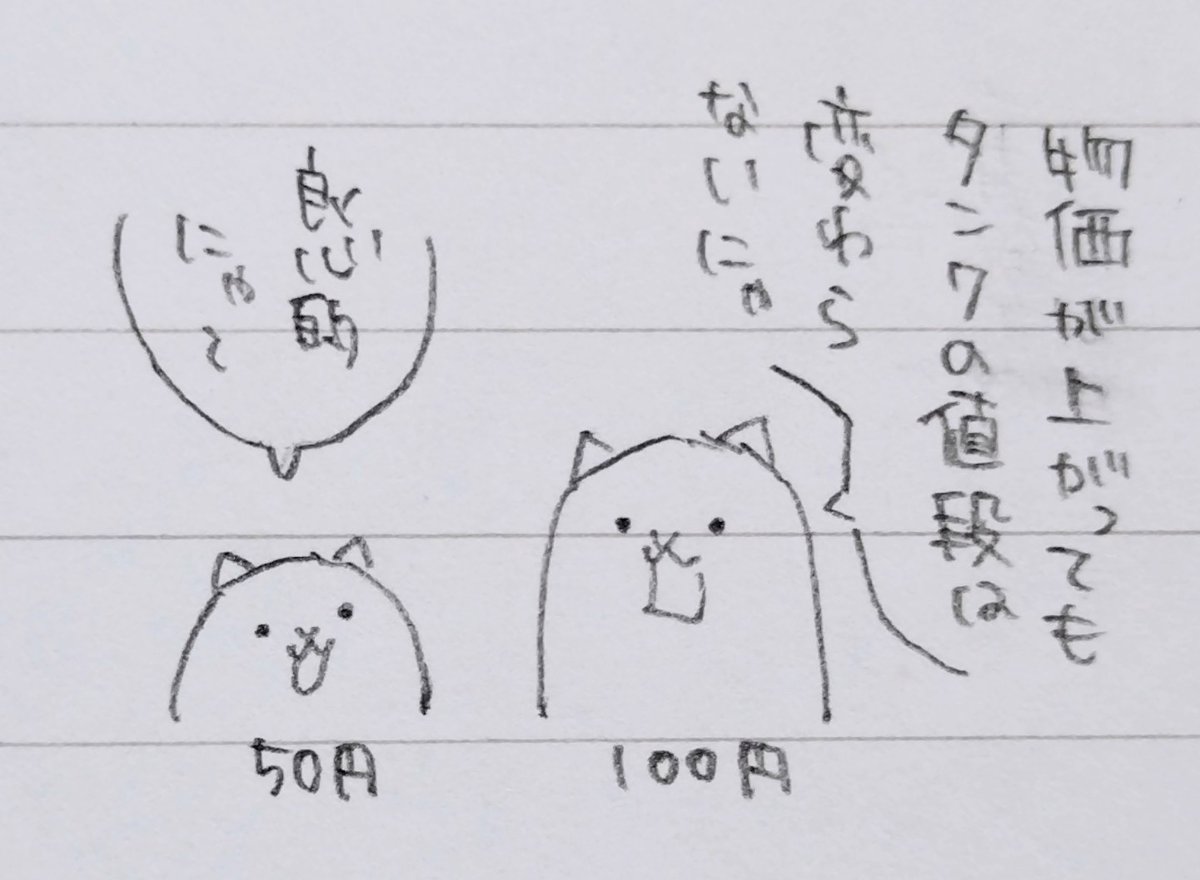 物価が上がっても
タンクの値段は
変わら
ないにゃ
良心的
にゃて
50円
100円